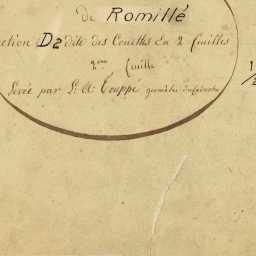 de Romillé
ction D2 dite des Couëtts En 2 feuilles
2ème feuille
Levée par St A: Couppé géomètre du Cadastre
1